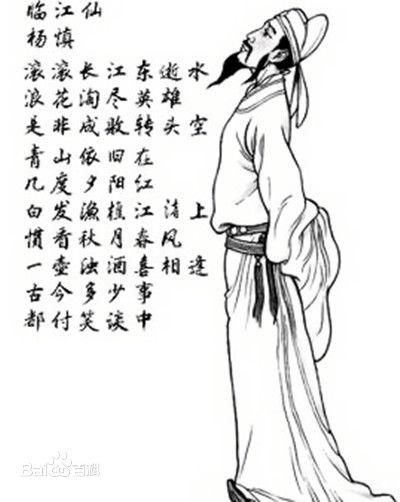 临江仙
杨慎
滚滚长江东逝水
浪花淘尽英雄
是非成败转头空
青山依旧在
几度夕阳红
白发渔樵江渚上
惯看秋月春风
一壶浊酒喜相逢
古今多少事
都付笑谈中
Baidu百科